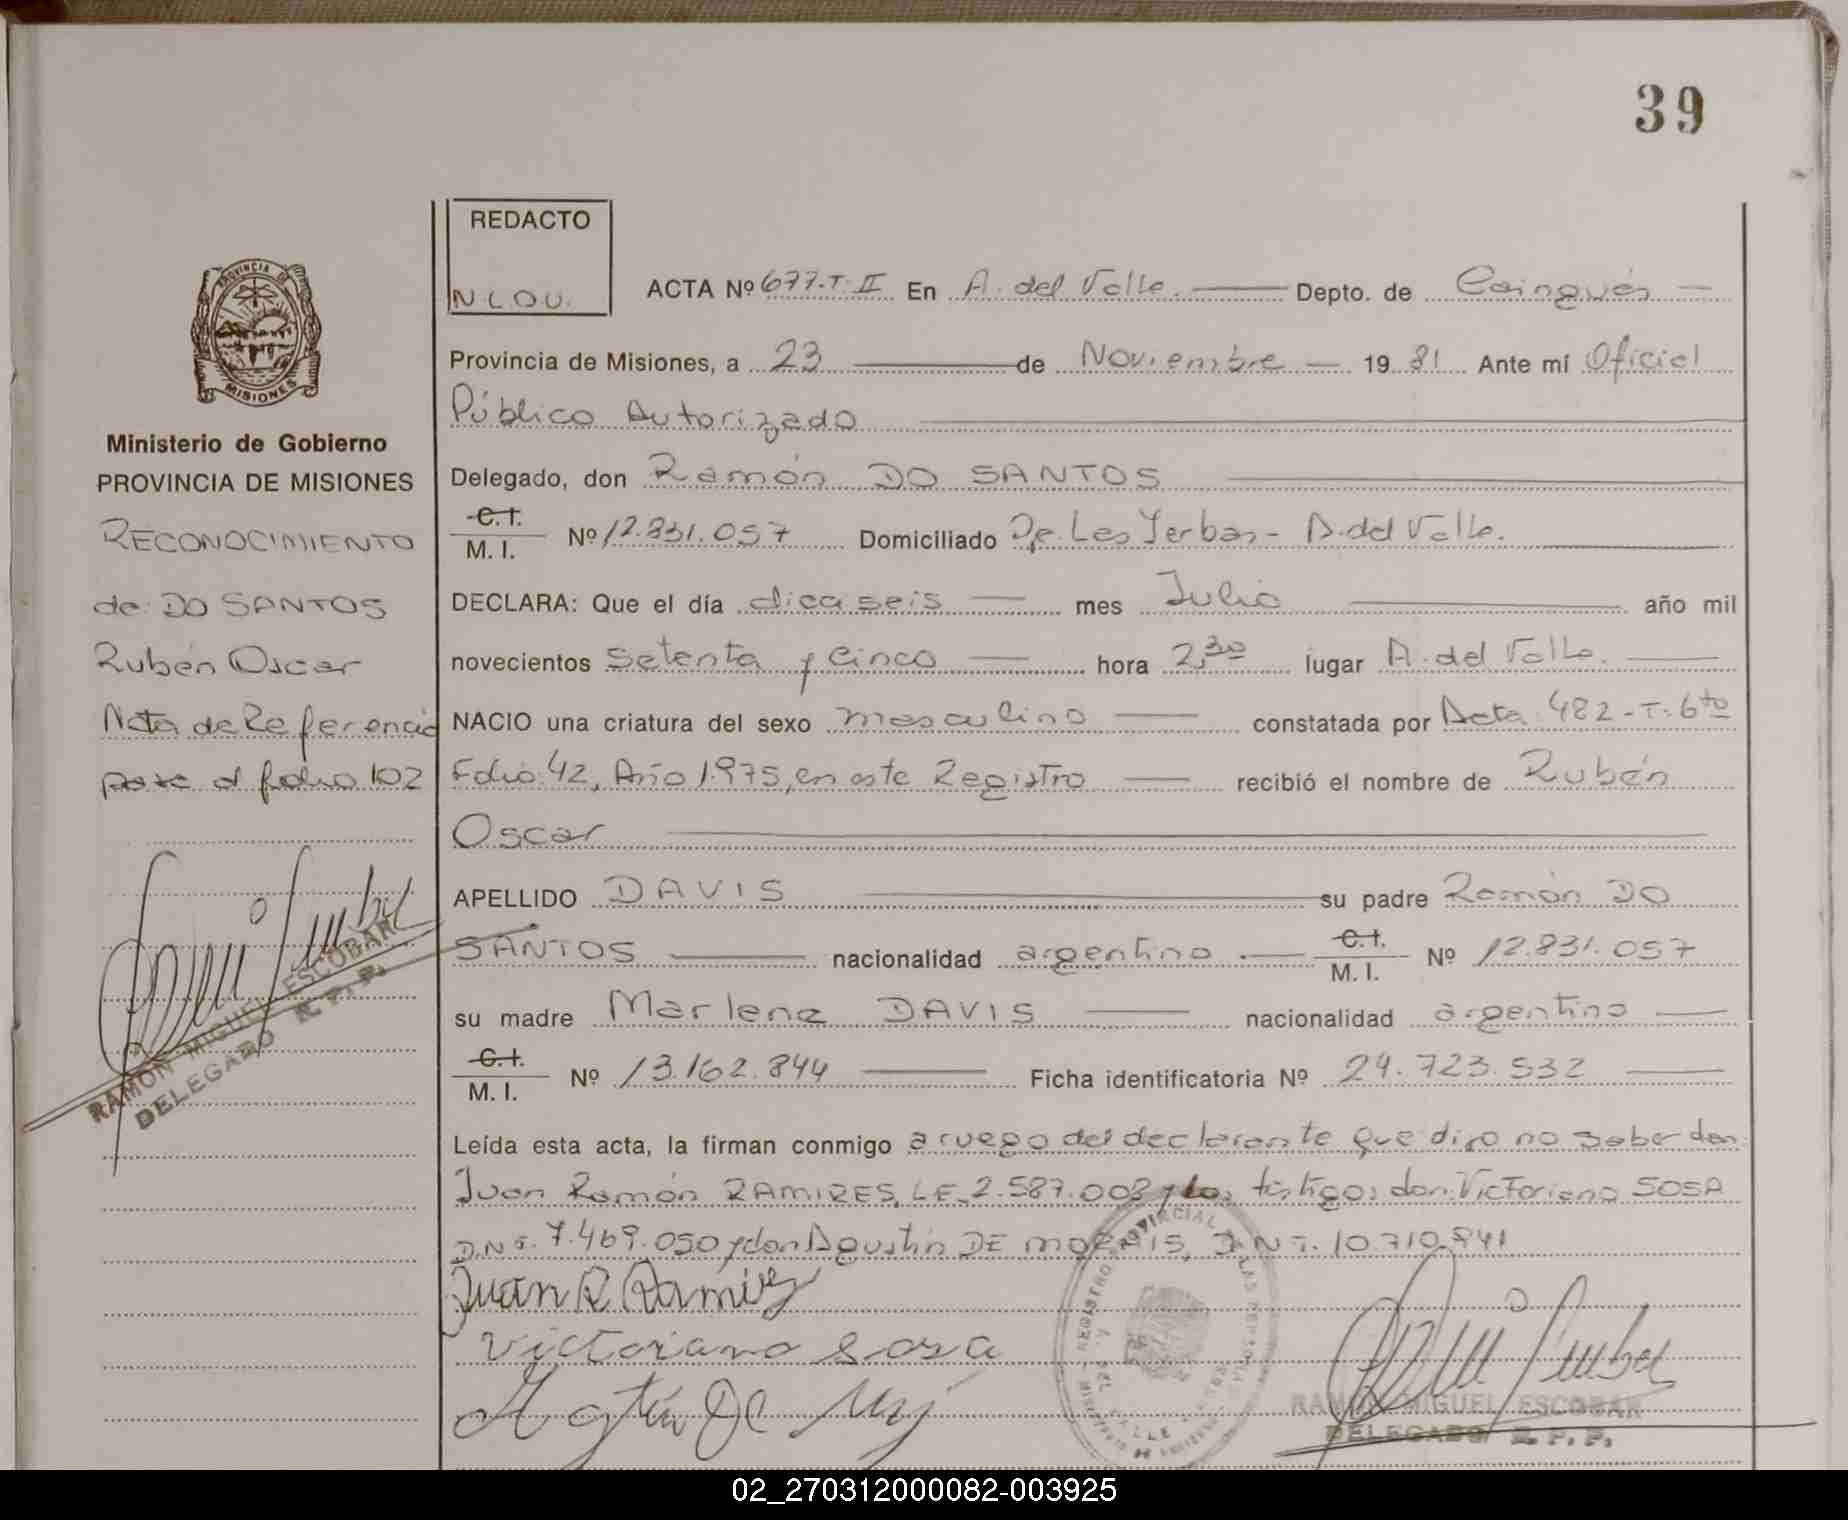 39
REDACTO
N L O U.
ACTA Nº 677.T.II En A. del Valle. Depto. de Cainguás
Provincia de Misiones, a 23 de Noviembre 19 81 Ante mí Oficial
Público Autorizado
Delegado, don Ramón DO SANTOS
C.I.
M. I. Nº 12.831.057 Domiciliado Pje. Las Yerbas - A. del Valle.
DECLARA: Que el día dieaseis mes Julio año mil
novecientos setenta y cinco hora 2,30 lugar A. del Valle.
NACIO una criatura del sexo masculino constatada por Acta 482-T-6to
Folio 42, Año 1.975, en este Registro recibió el nombre de Rubén
Oscar
APELLIDO DAVIS su padre Ramón DO
SANTOS nacionalidad argentino C.I.
M. I. Nº 12.831.057
su madre Marlene DAVIS nacionalidad argentina
C.I.
M. I. Nº 13.162.844 Ficha identificatoria Nº 24.723.532
Leída esta acta, la firman conmigo a ruego del declarante que dijo no saber don
Juan Ramón RAMIRES, LE. 2.587.003 y los testigos don Victoriano SOSA
D.N.I. 7.469.050 y don Agustín DE MORAIS, D.N.I. 10.710.941
Juan R Ramirez
Victoriano Sosa
RAMON MIGUEL ESCOBAR
DELEGADO R. P. P.
PROVINCIA DE
MISIONES
Ministerio de Gobierno
PROVINCIA DE MISIONES
RECONOCIMIENTO
de: DO SANTOS
Rubén Oscar
Nota de Referencia
pase al folio 102
RAMON MIGUEL ESCOBAR
DELEGADO R. P. P.
02_270312000082-003925